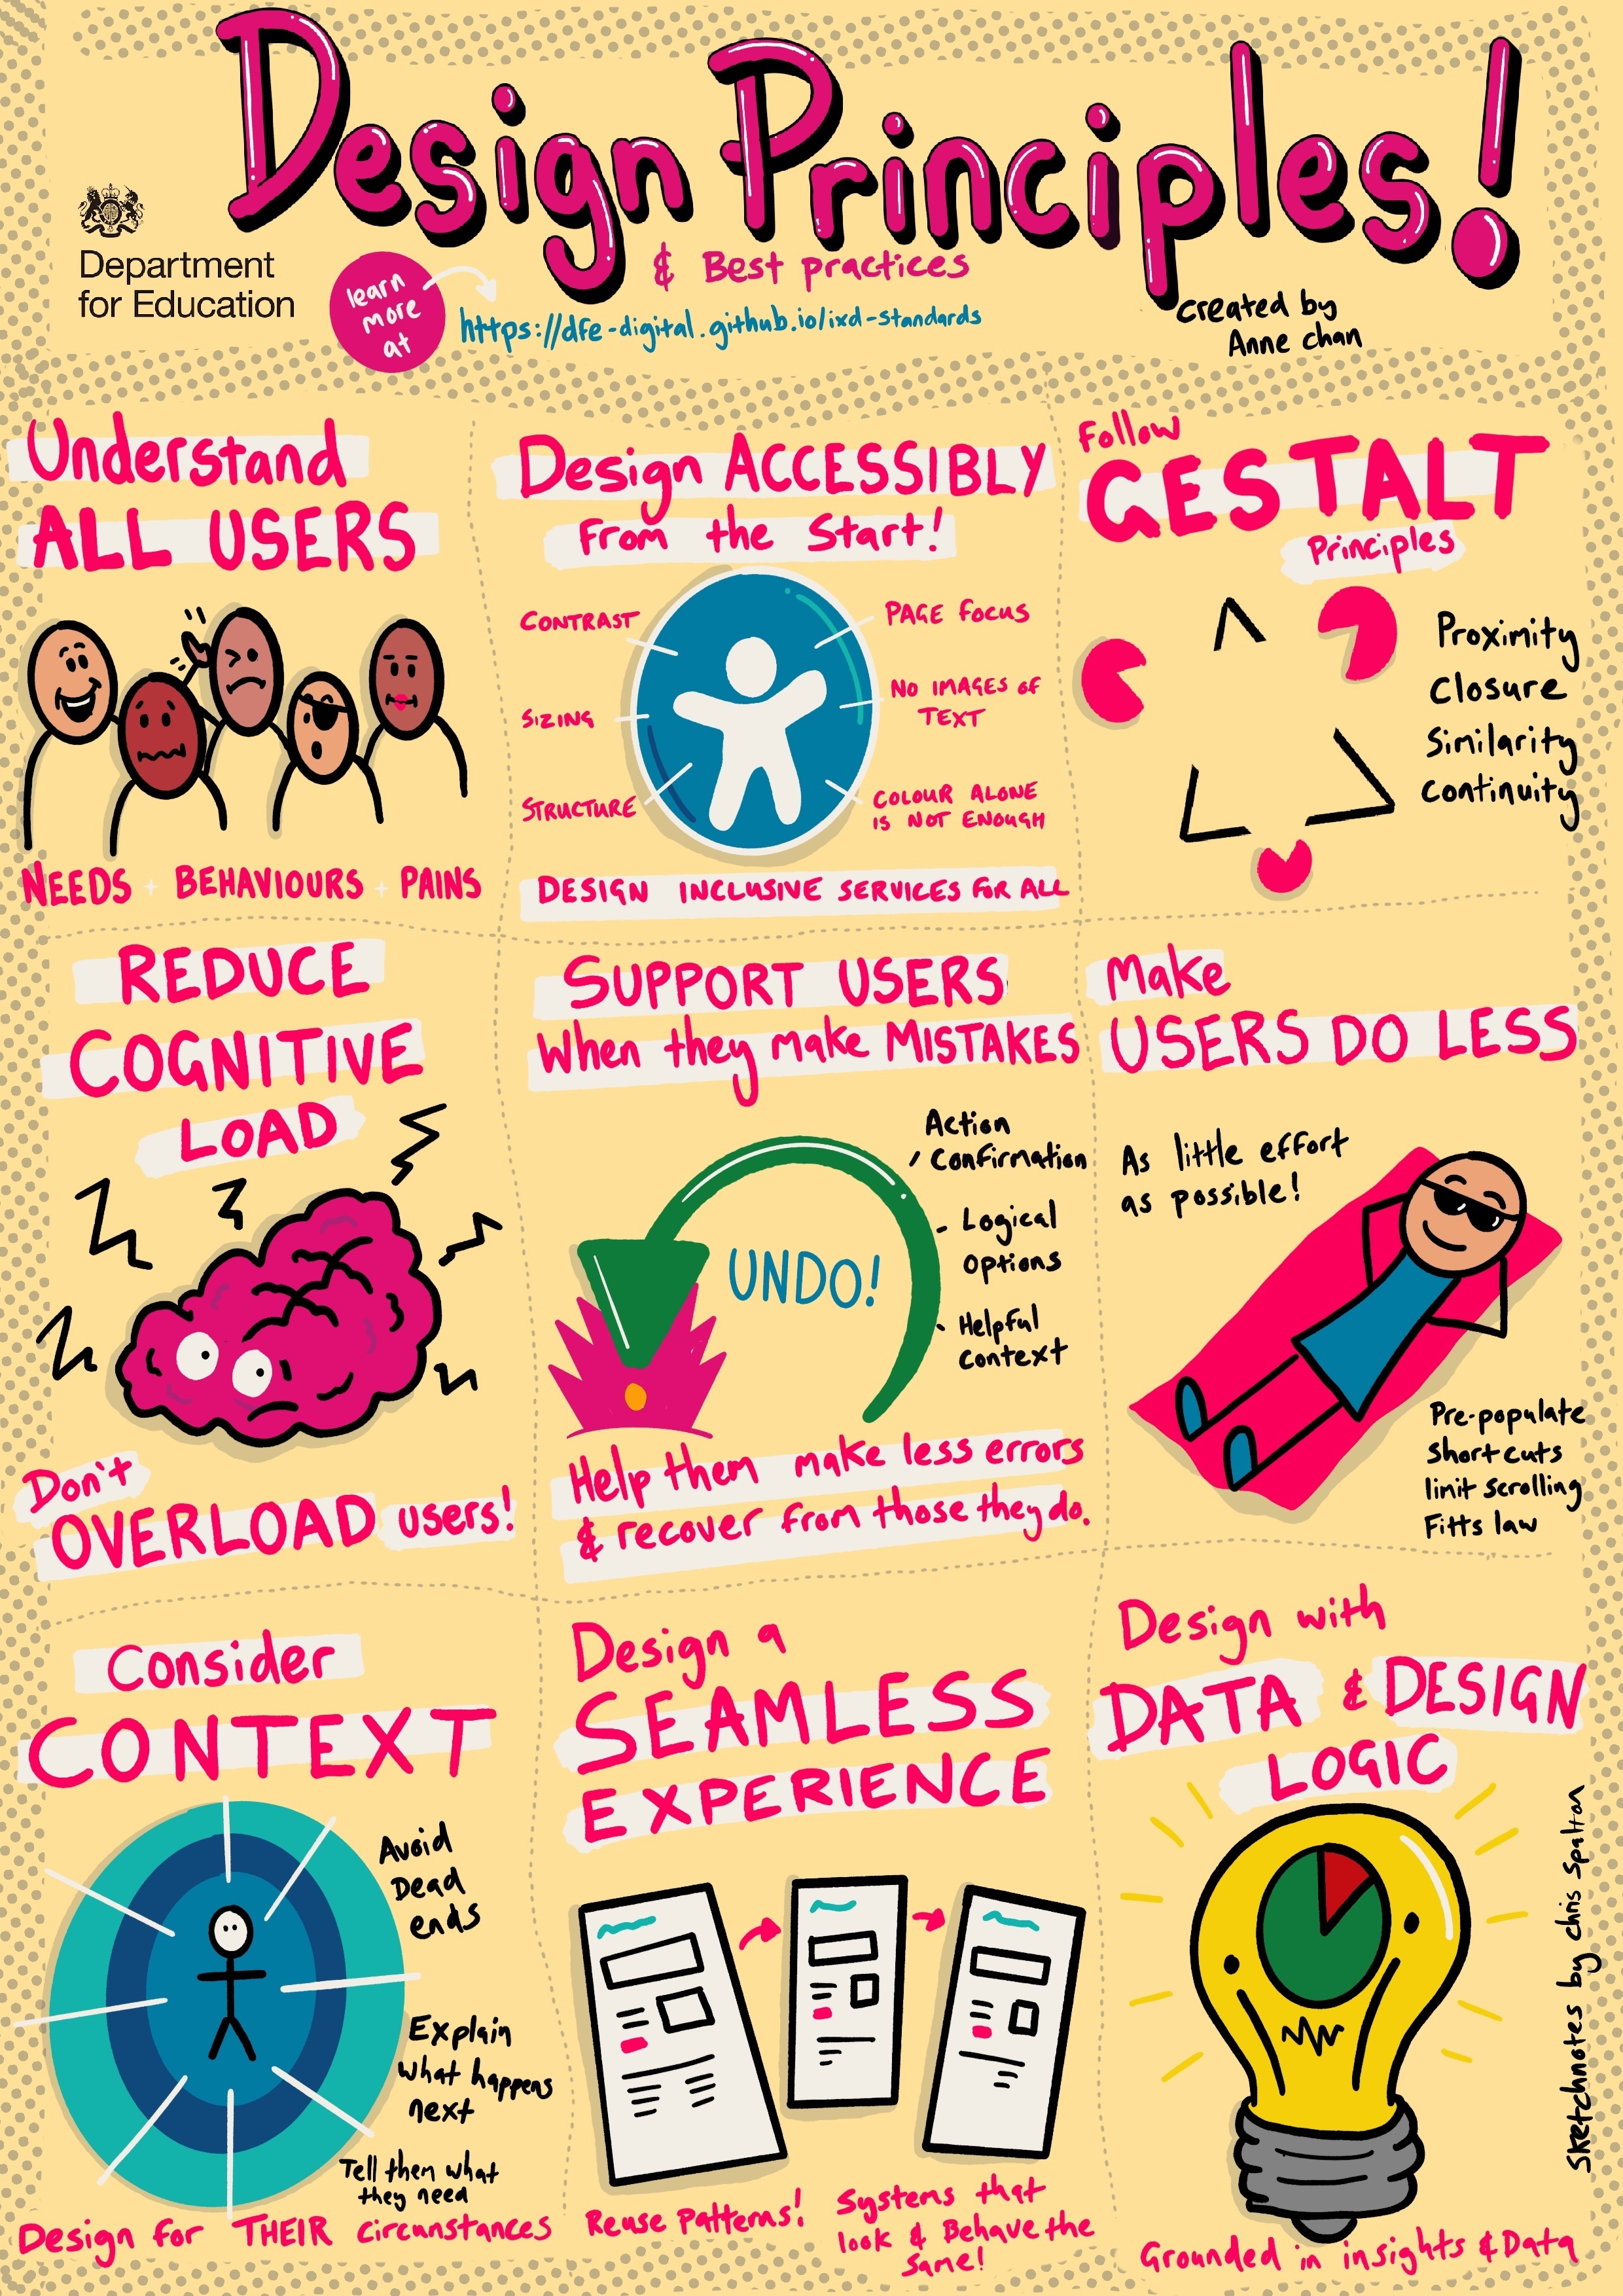 Design Principles!
& Best practices
Department
for Education
learn
more
at
https://dfe-digital.github.io/ixd-standards
created by
Anne chan
Understand
ALL USERS
NEEDS + BEHAVIOURS + PAINS
Design ACCESSIBLY
From the Start!
CONTRAST
SIZING
STRUCTURE
PAGE FOCUS
NO IMAGES OF
TEXT
COLOUR ALONE
IS NOT ENOUGH
DESIGN INCLUSIVE SERVICES FOR ALL
Follow
GESTALT
Principles
Proximity
Closure
Similarity
Continuity
REDUCE
COGNITIVE
LOAD
Don't
OVERLOAD users!
SUPPORT USERS
When they make MISTAKES
UNDO!
Action
Confirmation
- Logical
Options
Helpful
context
Help them make less errors
& recover from those they do.
Make
USERS DO LESS
As little effort
as possible!
Pre-populate
Short cuts
limit scrolling
Fitts law
Consider
CONTEXT
Avoid
Dead
ends
Explain
what happens
next
Tell them what
they need
Design for THEIR circunstances
Design a
SEAMLESS
EXPERIENCE
Reuse Patterns!
Systems that
look & Behave the
same!
Design with
DATA & DESIGN
LOGIC
Grounded in insights & Data
Sketchnotes by chris spalton